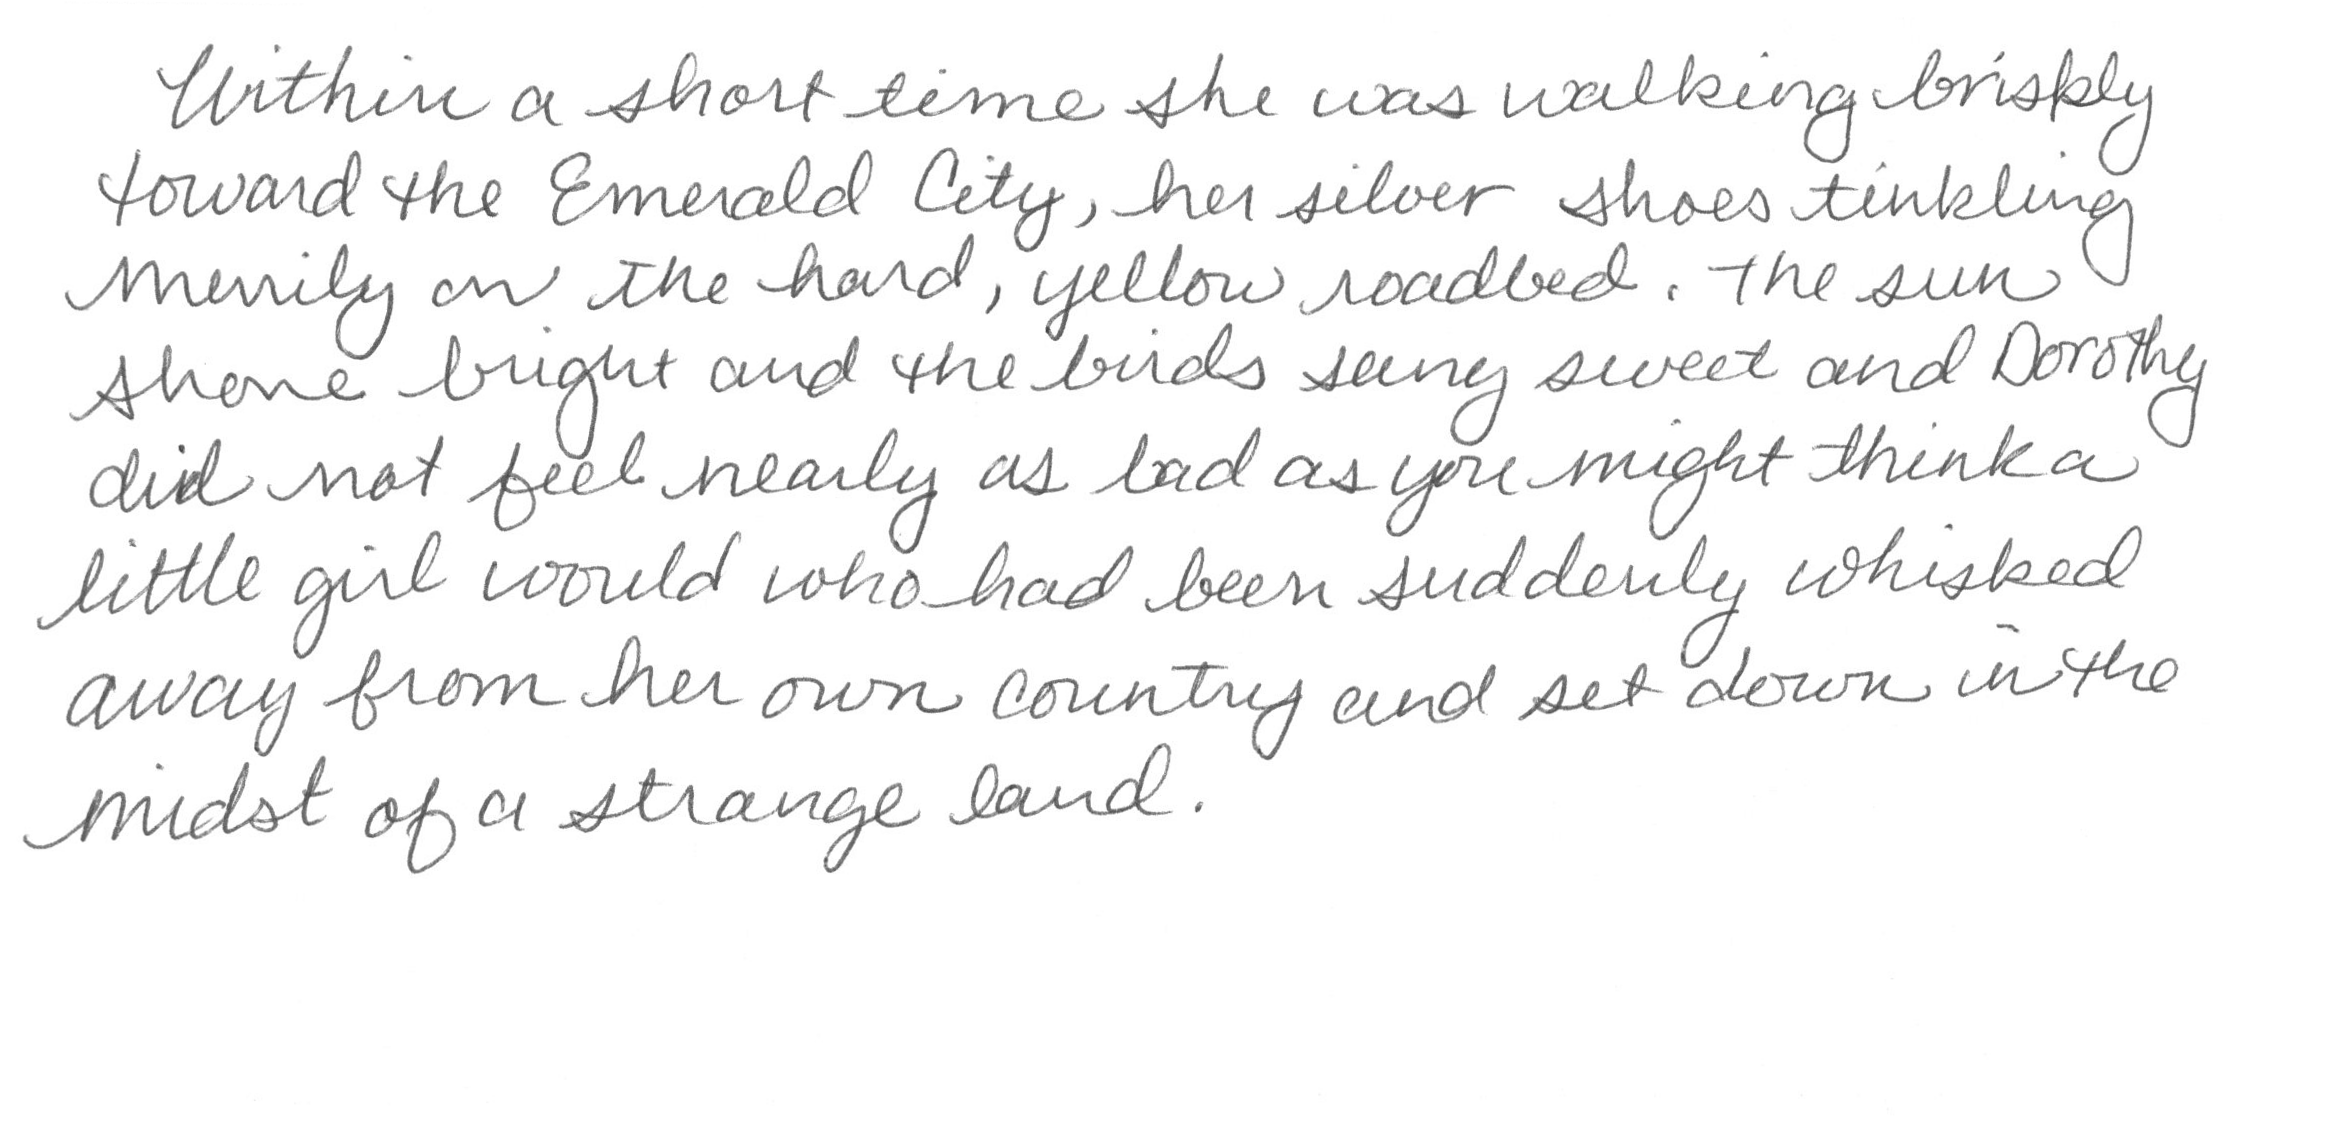 Within a short time she was walking briskly
toward the Emerald City, her silver shoes tinkling
merrily on the hard, yellow roadbed. The sun
shone bright and the birds sung sweet and Dorothy
did not feel nearly as bad as you might think a
little girl would who had been suddenly whisked
away from her own country and set down in the
midst of a strange land.